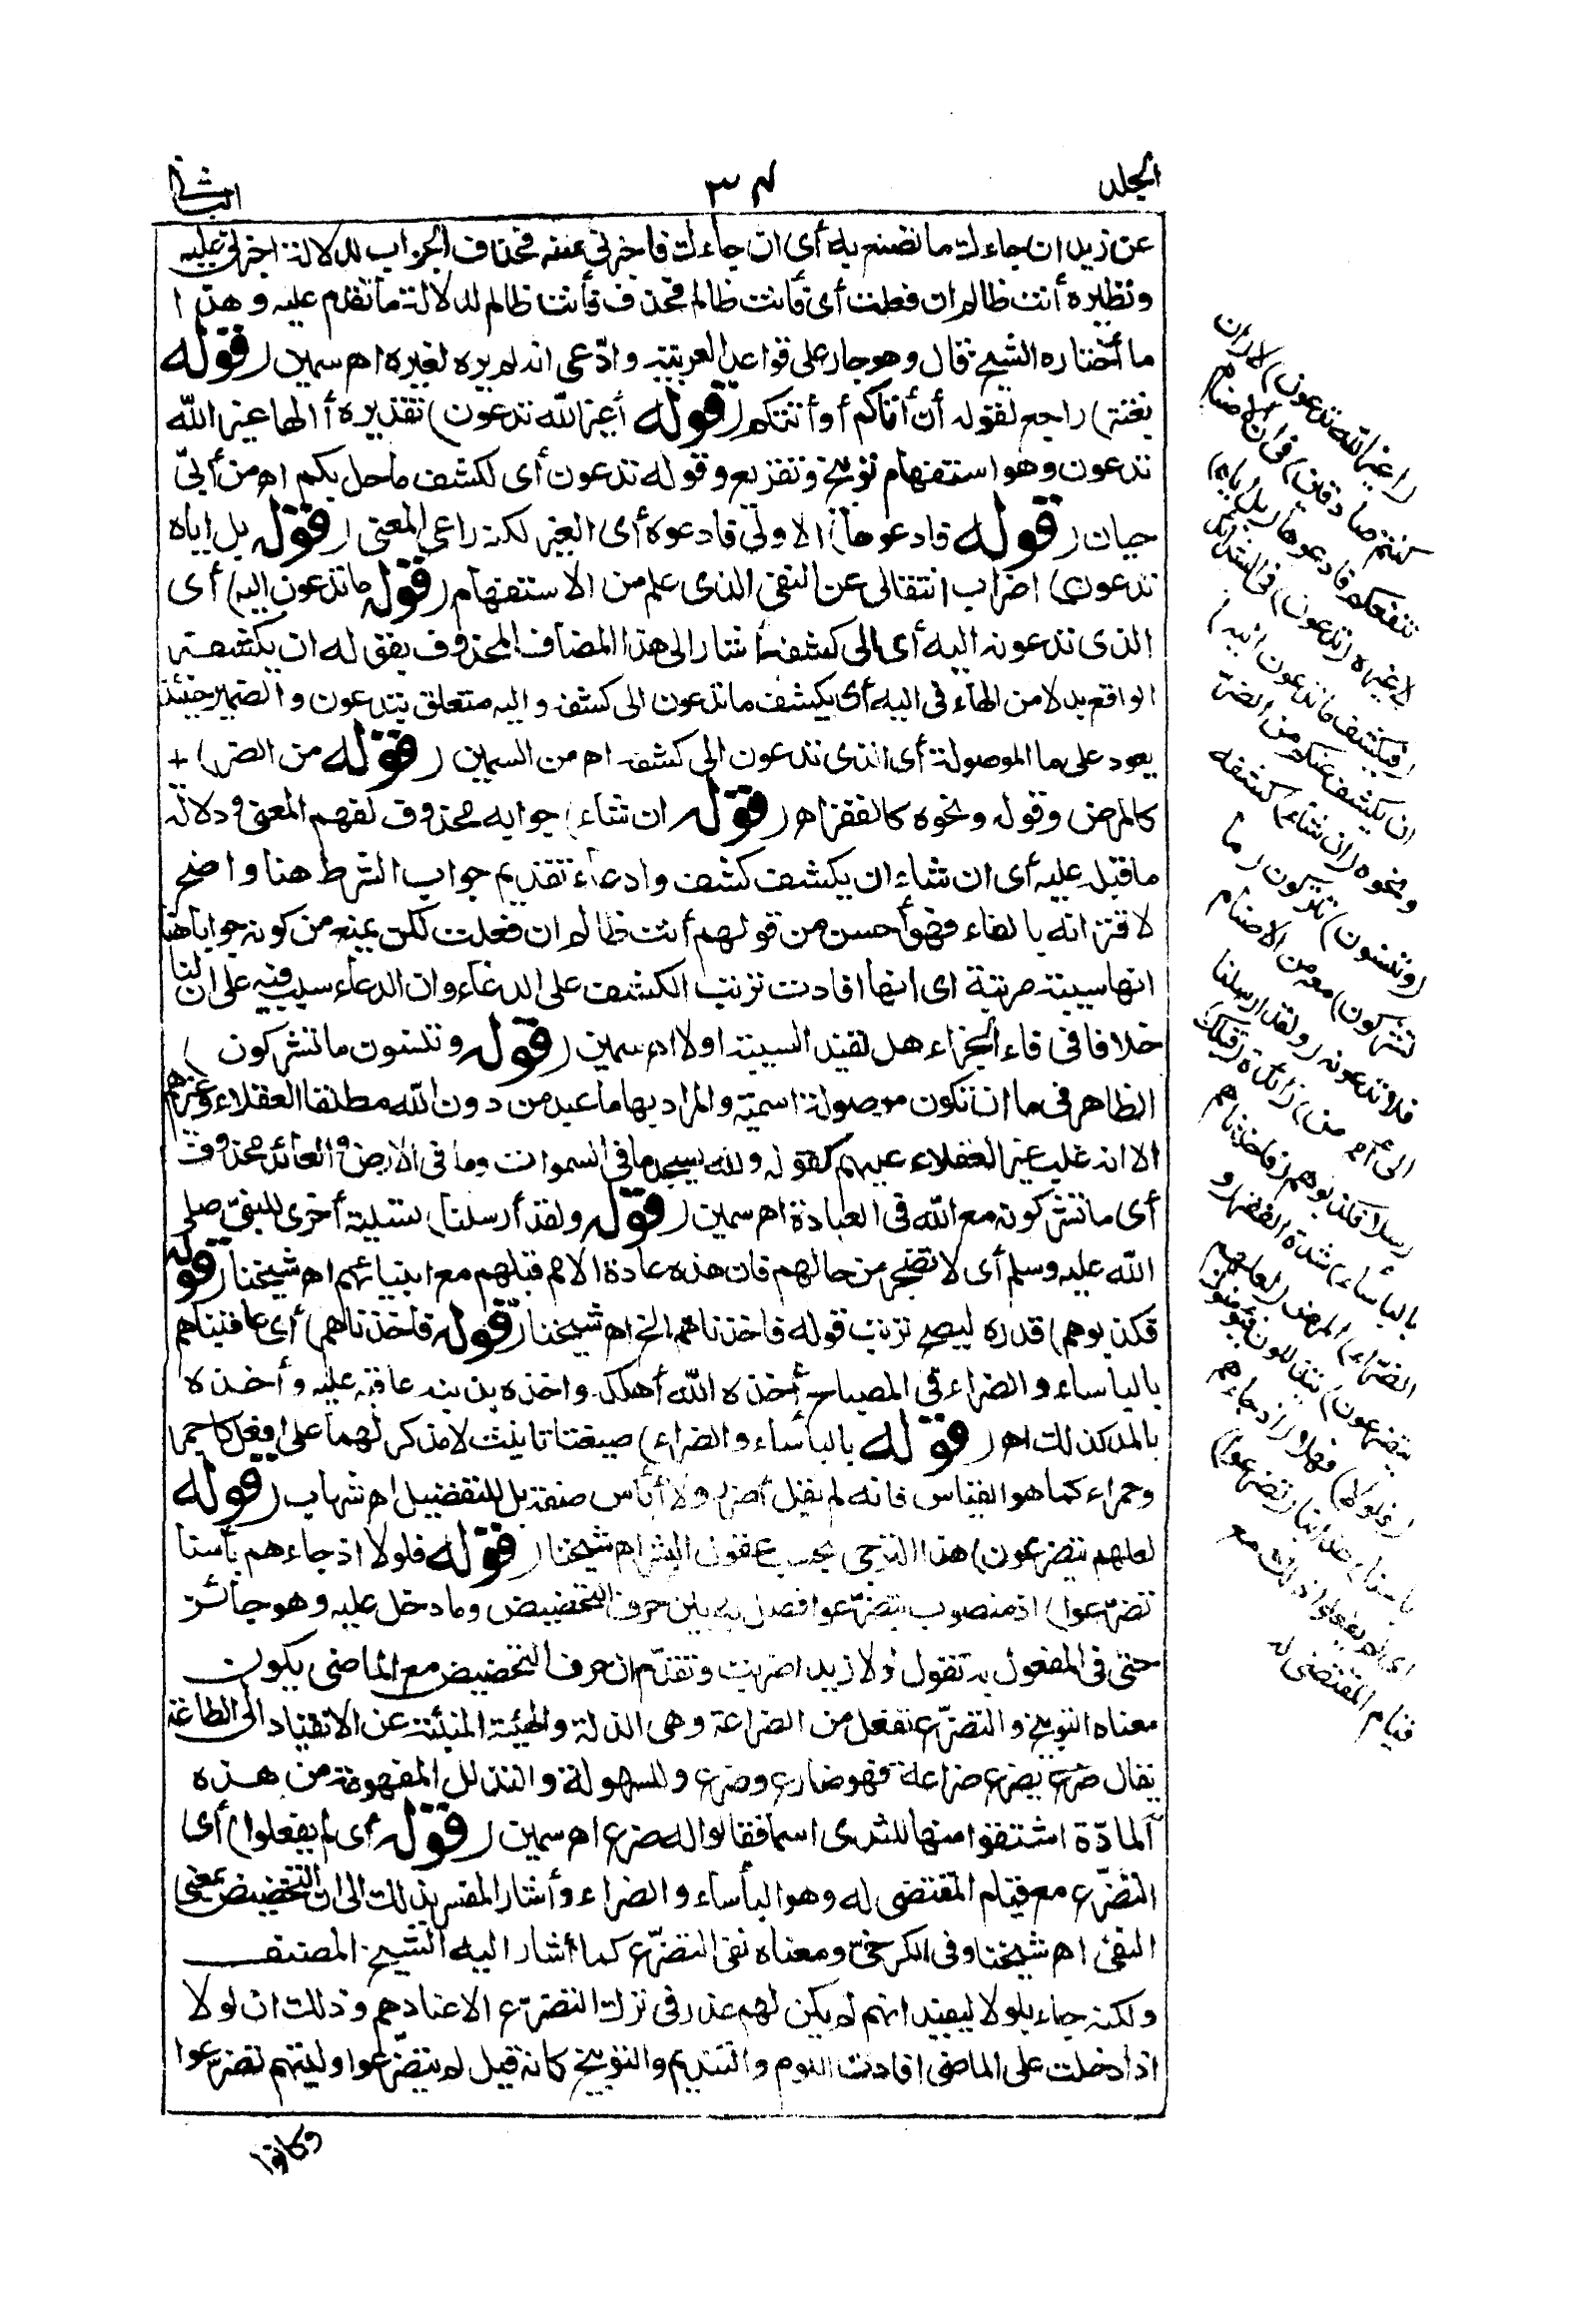 المجلد
٣٤
الثاني
عن زيد ان جاءك ما تصنع به أى ان جاءك فاخبرنى عنه فحذف الجواب لدلالة اخبرنى عليه
ونظيره أنت ظالم ان فعلت أى فأنت ظالم فحذف فأنت ظالم لدلالة ما تقدم عليه وهذا
ما أختاره الشيخ قال وهو جار على قواعد العربية وادّعى انه لم يره لغيره اهـ سمين (قوله
بغتة) راجع لقوله أن أتاكم أو أتتكم (قوله أغير الله تدعون) تقديره أ الها غير الله
تدعون وهو استفهام توبيخ وتقريع وقوله تدعون أى لكشف ما حل بكم اهـ من أبى
حيان (قوله فادعوها) الاولى فادعوه أى الغير لكنه راعى المعنى (قوله بل إياه
تدعون) اضراب انتقالى عن النفى الذى علم من الاستفهام (قوله ما تدعون اليه) أى
الذى تدعونه اليه أى الى كشفه أشار الى هذا المضاف المحذوف بقوله ان يكشفه
الواقع بدلا من الهاء فى اليه أى يكشف ما تدعون الى كشفه واليه متعلق بتدعون والضمير حينئذ
يعود على ما الموصولة أى الذى تدعون الى كشفه اهـ من السمين (قوله من الضر) +
كالمرض وقوله ونحوه كالفقر اهـ (قوله ان شاء) جوابه محذوف لفهم المعنى ودلالة
ما قبله عليه أى ان شاء ان يكشف كشف وادعاء تقديم جواب الشرط هنا واضح
لاقترانه بالفاء فهو أحسن من قولهم أنت ظالم ان فعلت لكن يمنع من كونه جوابا هنا
انها سببية مرتبة اى انها افادت ترتب الكشف على الدعاء وان الدعاء سبب فيه على ان لنا
خلافا فى فاء الجزاء هل تفيد السببية اولا اهـ سمين (قوله وتنسون ما تشركون)
الظاهر فى ما ان تكون موصولة اسمية والمراد بها ما عبد من دون الله مطلقا العقلاء وغيرهم
الا انه غلب غير العقلاء عليهم كقوله ولله يسجد ما فى السموات وما فى الارض والعائد محذوف
أى ما تشركونه مع الله فى العبادة اهـ سمين (قوله ولقد أرسلنا) تسلية أخرى للنبىّ صلى
الله عليه وسلم أى لا تضجر من حالهم فان هذه عادة الامم قبلهم مع انبيائهم اهـ شيخنا (قوله
فكذبوهم) قدره ليصح ترتب قوله فاخذناهم الخ اهـ شيخنا (قوله فاخذناهم) أى عاقبناهم
بالبأساء والضراء فى المصباح أخذه الله أهلكه واخذه بذنبه عاقبه عليه وأخذه
بالمد كذلك اهـ (قوله بالبأساء والضراء) صيغتا تانيث لا مذكر لهما على افعل كاحمر
وحمراء كما هو القياس فانه لم يقل أضر ولا أبأس صفة بل للتفضيل اهـ شهاب (قوله
لعلهم يتضرعون) هذا الترجى بحسب عقول البشر اهـ شيخنا (قوله فلولا اذ جاءهم بأسنا
تضرّعوا) اذ منصوب بتضرّعوا فصل به بين حرف التحضيض وما دخل عليه وهو جائز
حتى فى المفعول به تقول لولا زيدا ضربت وتقدّم ان حرف التحضيض مع الماضى يكون
معناه التوبيخ والتضرّع تفعل من الضراعة وهى الذلة والهيئة المنبئة عن الانقياد الى الطاعة
يقال ضرع يضرع ضراعة فهو ضارع وضرع وللسهولة والتذلل المفهومة من هذه
المادّة اشتقوا منها للثدى اسما فقالوا له ضرع اهـ سمين (قوله أى لم يفعلوا) أى
التضرّع مع قيام المقتضى له وهو البأساء والضراء وأشار المفسر بذلك الى ان التحضيض بمعنى
النفى اهـ شيخنا وفى الكرخىّ ومعناه نفى التضرّع كما أشار اليه الشيخ المصنف
ولكنه جاء بلولا ليفيد انهم لم يكن لهم عذر فى ترك التضرّع الا عنادهم وذلك ان لولا
اذا دخلت على الماضى افادت اللوم والتنديم والتوبيخ كانه قيل لم يتضرّعوا وليتهم تضرعوا
وكانوا
(أغير الله تدعون) لا (ان
كنتم صادقين) فى ان الاصنام
تنفعكم فادعوها (بل إياه)
لا غيره (تدعون) فى الشدائد
(فيكشف ما تدعون اليه)
ان يكشف عنكم من الضر
ونحوه (ان شاء) كشفه
(وتنسون) تتركون (ما
تشركون) معه من الاصنام
فلا تدعونه (ولقد ارسلنا
الى أمم من) زائدة (قبلك)
رسلا فكذبوهم (فاخذناهم
بالبأساء) شدة الفقر (و
الضرّاء) المرض (لعلهم
يتضرعون) يتذللون فيؤمنون
(فلولا) فهلا (اذ جاءهم
بأسنا) عذابنا (تضرعوا)
اى لم يفعلوا ذلك مع
قيام المقتضى له